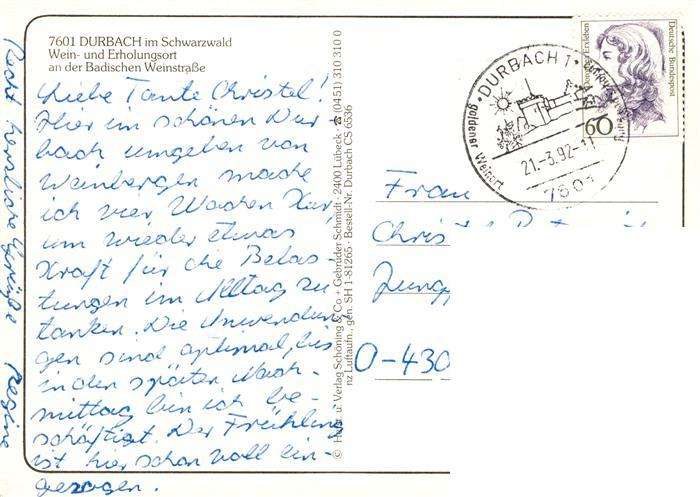 7601 DURBACH im Schwarzwald
Wein- und Erholungsort
an der Badischen Weinstraße
Liebe Tante Christel!
Hier im schönen Dur-
bach umgeben von
Weinbergen mache
ich vier Wochen Kur,
um wieder etwas
Kraft für die Belas-
tungen im Alltag zu
tanken. Die Anwendun-
gen sind optimal, bis
in den späten Nach-
mittag bin ich be-
schäftigt. Der Frühling
ist hier schon voll ein-
gezogen.
Recht herzliche Grüße Regine
© Hrsg. u. Verlag Schöning & Co + Gebrüder Schmidt · 2400 Lübeck · ☎ (04 51) 310 310 0
nz Luftaufn., gen. SH 1-81265 · Bestell-Nr. Durbach CS 6536
· DURBACH 1 ·
goldener Weinort
21.-3.92-11
7601
60
Deutsche Bundespost
Frau
Chris
Jung
O-430